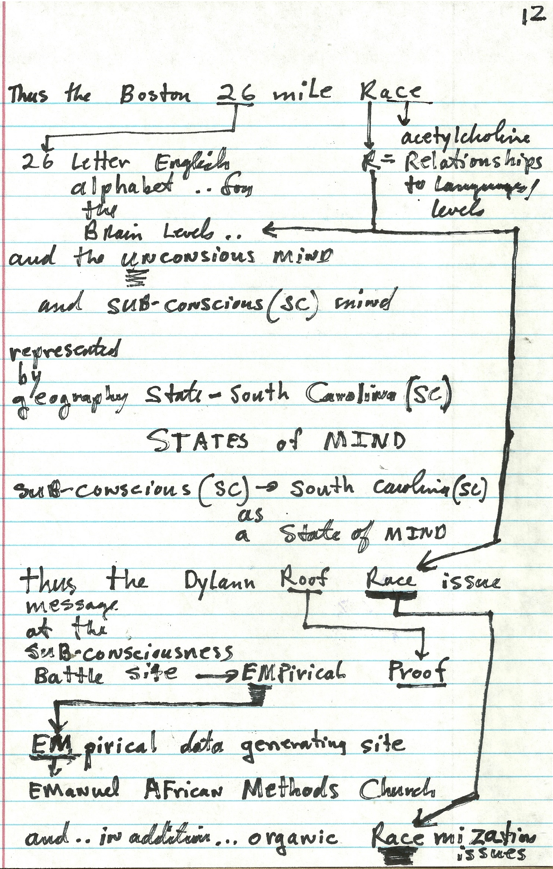 12
Thus the Boston 26 mile Race
acetylcholine
26 Letter English R = Relationships
alphabet .. for to languages/
the levels
Brain Levels ..
and the unconsious mind
and SUB-conscious (SC) mind
represented
by
geography State - South Carolina (SC)
STATES of MIND
SUB-conscious (SC) → South Carolina (SC)
as
a State of MIND
thus the Dylann Roof Race issue
message
at the
SUB-consciousness
Battle site → EMPirical Proof
EM pirical data generating site
EManuel AFrican Methods Church
and .. in addition... organic Race mization
issues